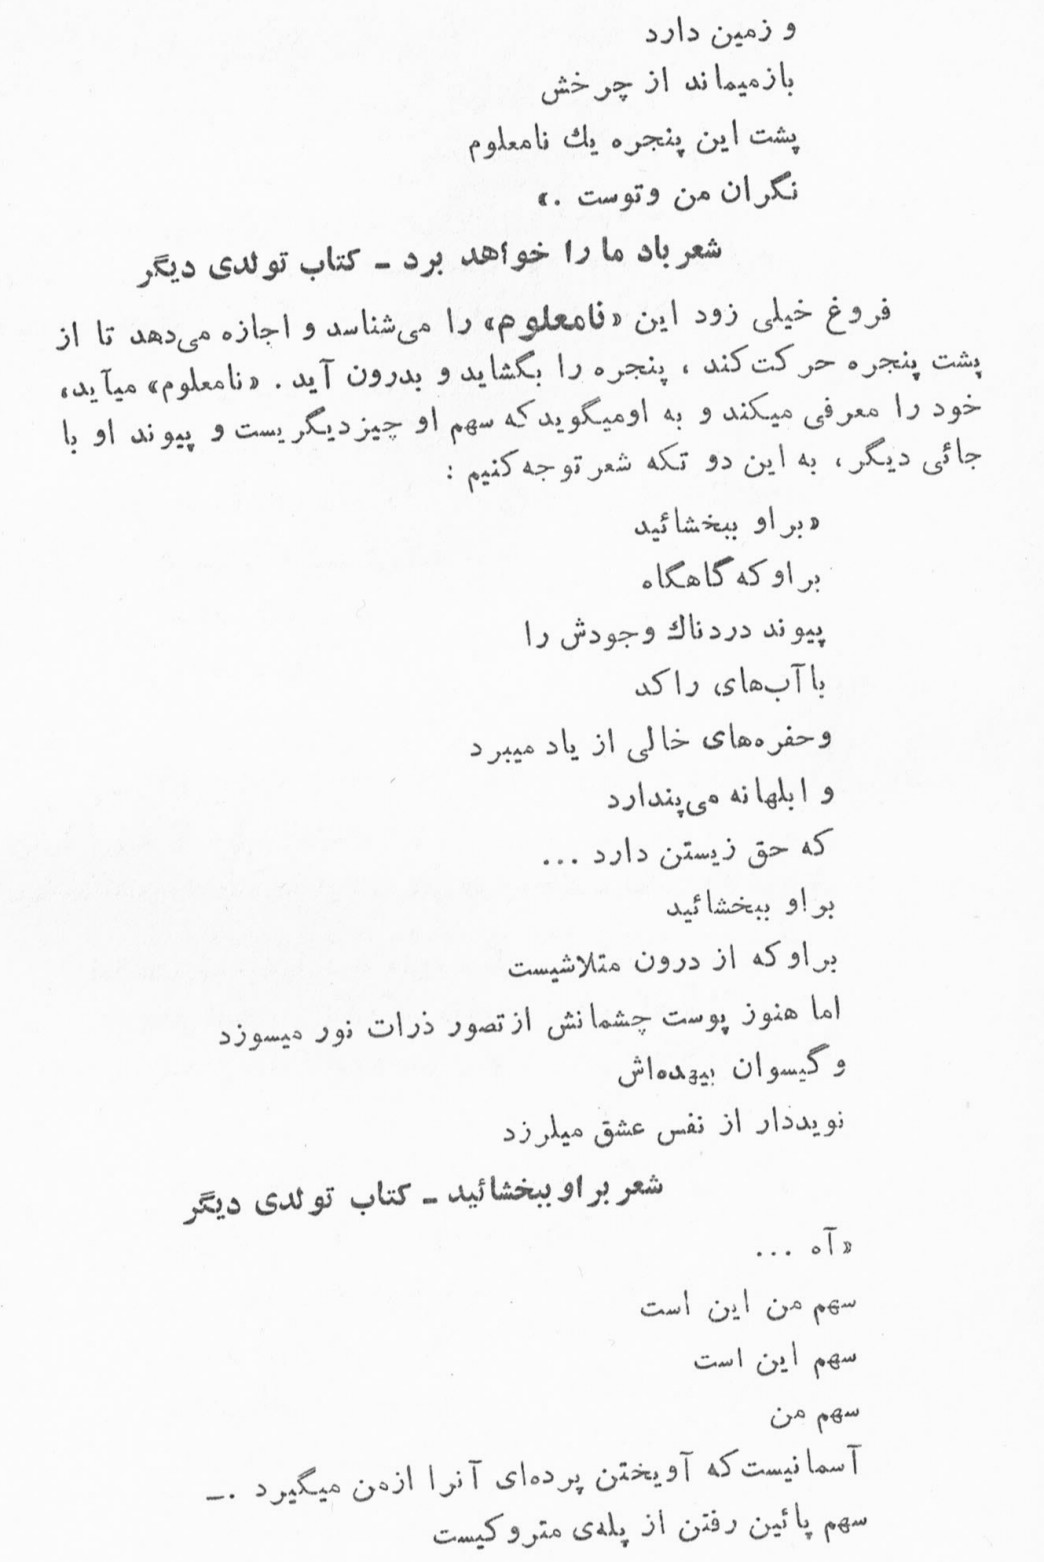 و زمین دارد
بازمیماند از چرخش
پشت این پنجره یك نامعلوم
نگران من وتوست .»
شعر باد ما را خواهد برد ـ کتاب تولدی دیگر
فروغ خیلی زود این «نامعلوم» را می‌شناسد و اجازه می‌دهد تا از
پشت پنجره حرکت‌کند ، پنجره را بگشاید و بدرون آید . «نامعلوم» میآید،
خود را معرفی میکند و به اومیگوید که سهم او چیزدیگریست و پیوند او با
جائی دیگر، به این دو تکه شعر توجه کنیم :
«بر او ببخشائید
بر او که گاهگاه
پیوند دردناك وجودش را
با آب‌های راکد
وحفره‌های خالی از یاد میبرد
و ابلهانه می‌پندارد
که حق زیستن دارد ...
بر او ببخشائید
بر او که از درون متلاشیست
اما هنوز پوست چشمانش از تصور ذرات نور میسوزد
و گیسوان بیهده‌اش
نویددار از نفس عشق میلرزد
شعر بر او ببخشائید ـ کتاب تولدی دیگر
«آه ...
سهم من این است
سهم این است
سهم من
آسمانیست که آویختن پرده‌ای آنرا ازمن میگیرد .ـ
سهم پائین رفتن از پله‌ی متروکیست